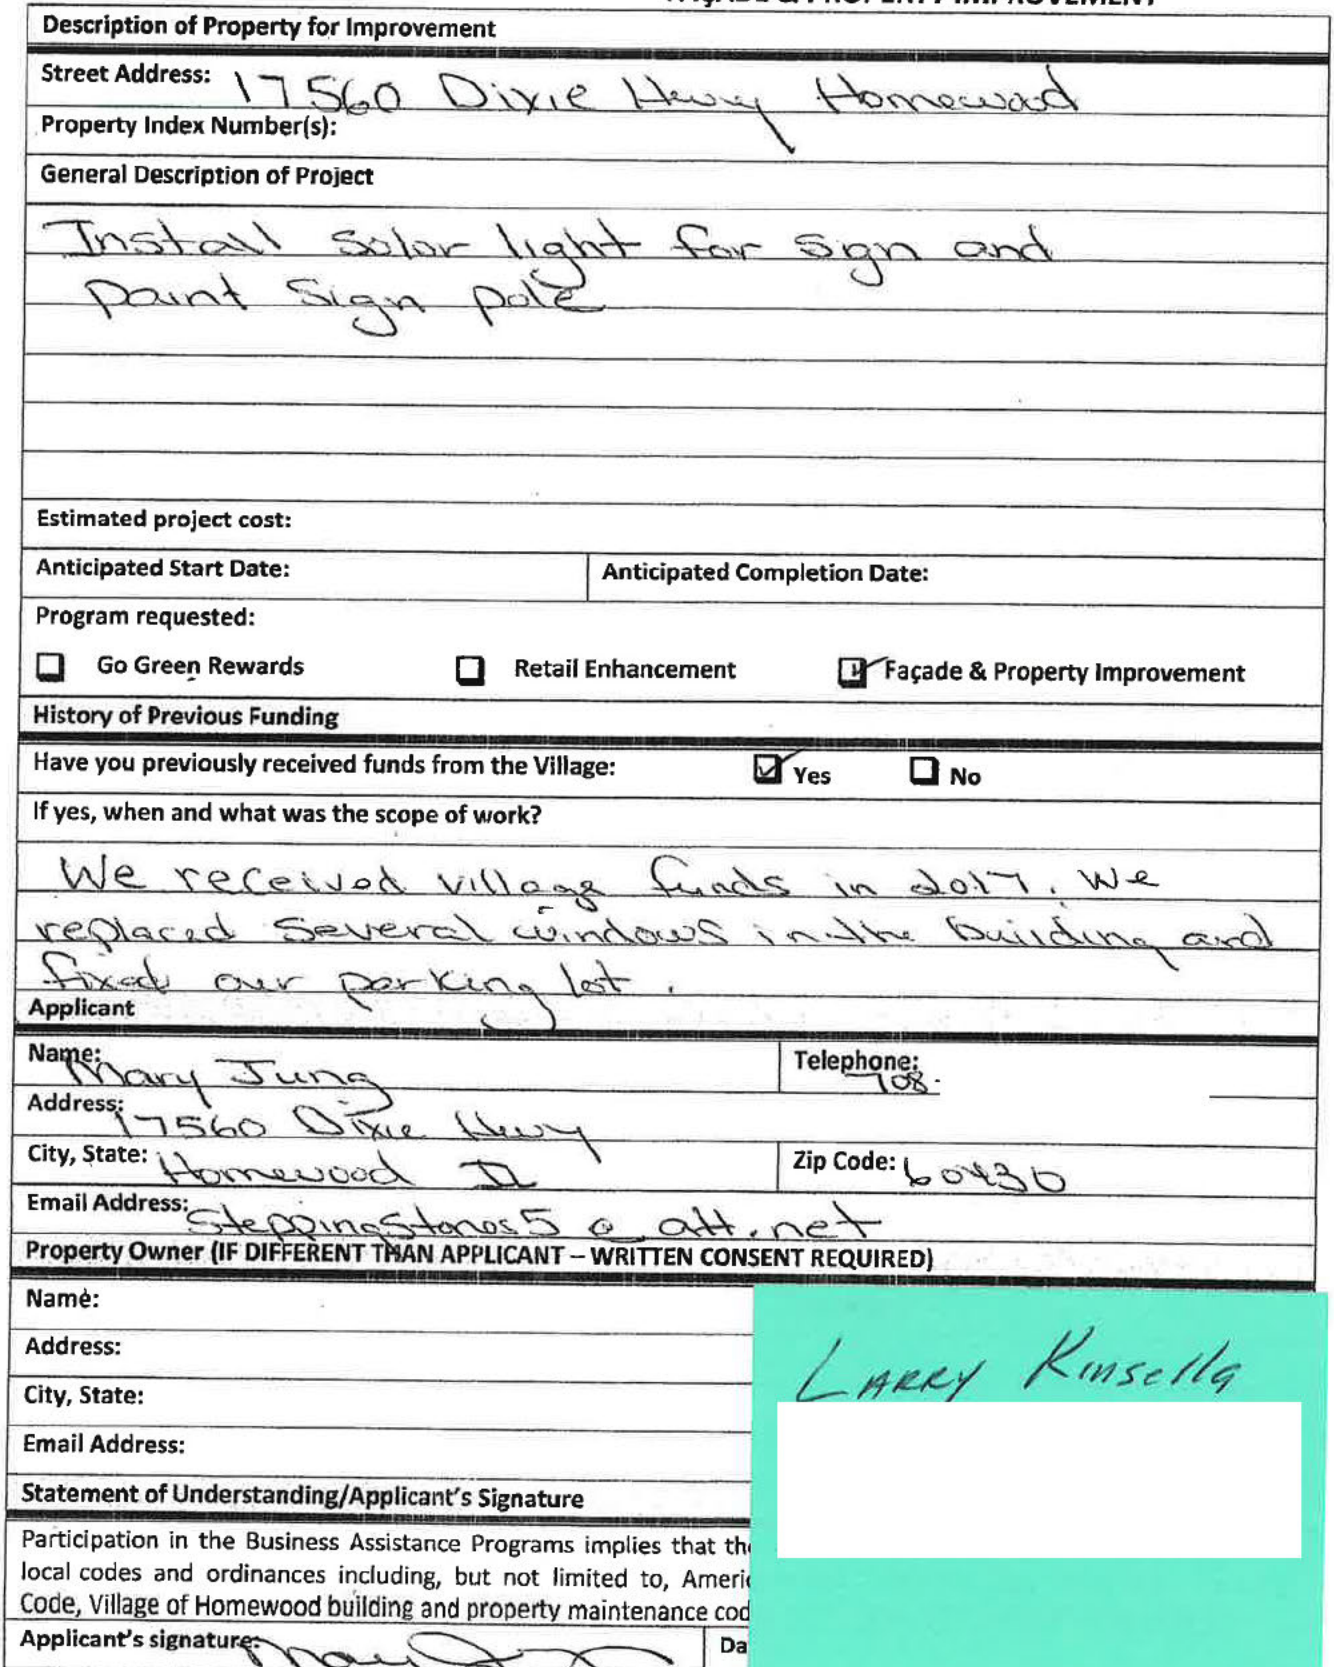 FAÇADE & PROPERTY IMPROVEMENT
Description of Property for Improvement
Street Address: 17560 Dixie Hwy Homewood
Property Index Number(s):
General Description of Project
Install Solar light for Sign and
paint Sign pole
Estimated project cost:
Anticipated Start Date: Anticipated Completion Date:
Program requested:
Go Green Rewards Retail Enhancement Façade & Property Improvement
History of Previous Funding
Have you previously received funds from the Village: Yes No
If yes, when and what was the scope of work?
We received village funds in 2017. We
replaced several windows in the building and
fixed our parking lot.
Applicant
Name: Mary Jung Telephone: 708-
Address: 17560 Dixie Hwy
City, State: Homewood IL Zip Code: 60430
Email Address: SteppingStones5@att.net
Property Owner (IF DIFFERENT THAN APPLICANT – WRITTEN CONSENT REQUIRED)
Name:
Address:
LARRY Kinsella
City, State:
Email Address:
Statement of Understanding/Applicant's Signature
Participation in the Business Assistance Programs implies that the
local codes and ordinances including, but not limited to, Americ
Code, Village of Homewood building and property maintenance cod
Applicant's signature: Da